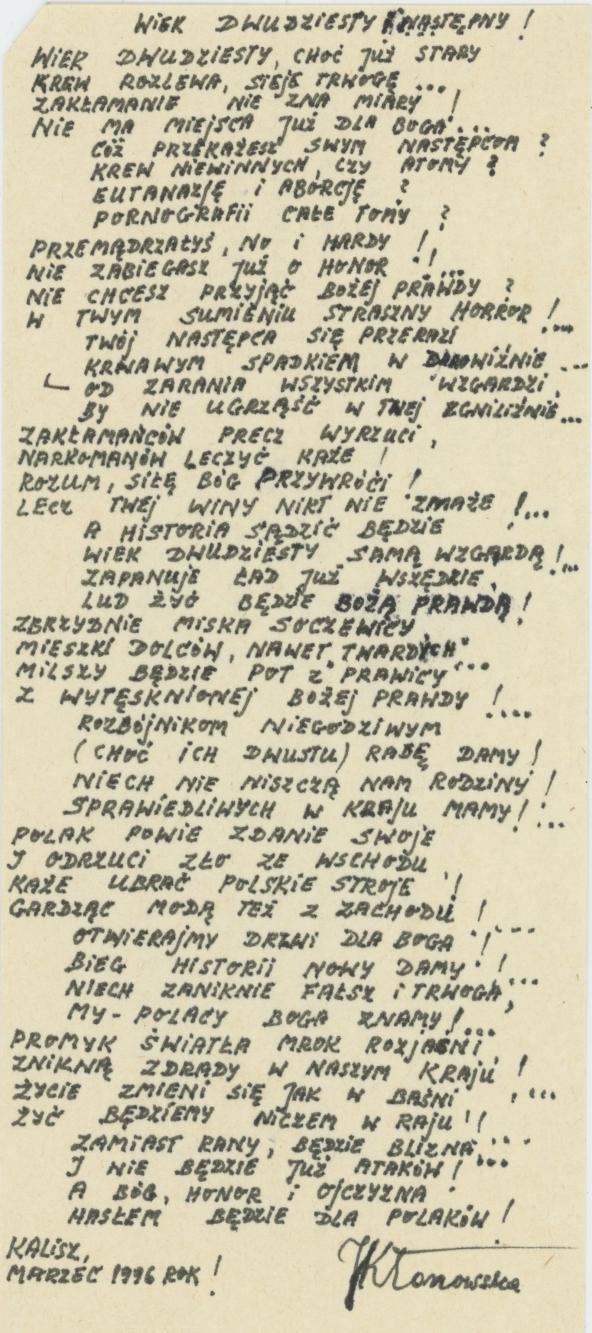 WIEK DWUDZIESTY I NASTĘPNY!
WIEK DWUDZIESTY, CHOĆ JUŻ STARY
KREW ROZLEWA, SIEJE TRWOGĘ...
ZAKŁAMANIE NIE ZNA MIARY!
NIE MA MIEJSCA JUŻ DLA BOGA...
CÓŻ PRZEKAŻESZ SWYM NASTĘPCOM?
KREW NIEWINNYCH, CZY ATOMY?
EUTANAZJĘ I ABORCJĘ?
PORNOGRAFII CAŁE TOMY?
PRZEMĄDRZAŁYŚ, NO I HARDY!
NIE ZABIEGASZ JUŻ O HONOR!...
NIE CHCESZ PRZYJĄĆ BOŻEJ PRAWDY?
W TWYM SUMIENIU STRASZNY HORROR!...
TWÓJ NASTĘPCA SIĘ PRZERAZI
KRWAWYM SPADKIEM W DAROWIŹNIE...
OD ZARANIA WSZYSTKIM WZGARDZI,
BY NIE UGRZĄŚĆ W TWEJ ZGNILIŹNIE...
ZAKŁAMAŃCÓW PRECZ WYRZUCI,
NARKOMANÓW LECZYĆ KAŻE!
ROZUM, SIŁĘ BÓG PRZYWRÓCI!
LECZ TWEJ WINY NIKT NIE ZMAŻE!...
A HISTORIA SĄDZIĆ BĘDZIE
WIEK DWUDZIESTY SAMĄ WZGARDĄ!...
ZAPANUJE ŁAD JUŻ WSZĘDZIE,
LUD ŻYĆ BĘDZIE BOŻĄ PRAWDĄ!
ZBRZYDNIE MISKA SOCZEWICY
MIESZKI DOLCÓW, NAWET TWARDYCH
MILSZY BĘDZIE POT Z PRAWICY...
Z WYTĘSKNIONEJ BOŻEJ PRAWDY!...
ROZBÓJNIKOM NIEGODZIWYM
(CHOĆ ICH DWUSTU) RADĘ DAMY!
NIECH NIE NISZCZĄ NAM RODZINY!
SPRAWIEDLIWYCH W KRAJU MAMY!...
POLAK POWIE ZDANIE SWOJE
I ODRZUCI ZŁO ZE WSCHODU
KAŻE UBRAĆ POLSKIE STROJE!
GARDZĄC MODĄ TEŻ Z ZACHODU!
OTWIERAJMY DRZWI DLA BOGA!...
BIEG HISTORII NOWY DAMY!
NIECH ZANIKNIE FAŁSZ I TRWOGA,
MY - POLACY BOGA ZNAMY!...
PROMYK ŚWIATŁA MROK ROZJAŚNI
ZNIKNĄ ZDRADY W NASZYM KRAJU!
ŻYCIE ZMIENI SIĘ JAK W BAŚNI,...
ŻYĆ BĘDZIEMY NICZEM W RAJU!
ZAMIAST RANY, BĘDZIE BLIZNA...
I NIE BĘDZIE JUŻ ATAKÓW!
A BÓG, HONOR I OJCZYZNA
HASŁEM BĘDZIE DLA POLAKÓW!
KALISZ,
MARZEC 1996 ROK!
JKłonowska